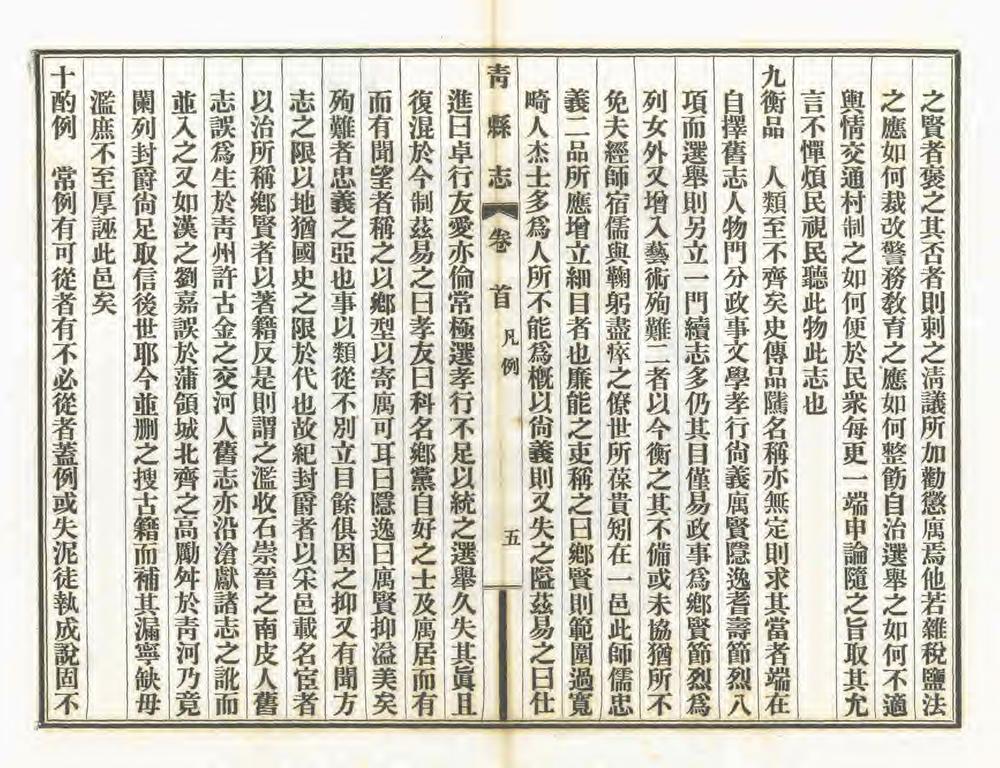 之賢者褒之其否者則刺之淸議所加勸懲寓焉他若雜稅鹽法
之應如何裁改警務敎育之應如何整飭自治選舉之如何不適
輿情交通村制之如何便於民衆每更一端申論隨之旨取其尤
言不憚煩民視民聽此物此志也
九衡品　人類至不齊矣史傳品隲名稱亦無定則求其當者端在
自擇舊志人物門分政事文學孝行尙義寓賢隱逸耆壽節烈八
項而選舉則另立一門續志多仍其目僅易政事爲鄕賢節烈爲
列女外又增入藝術殉難二者以今衡之其不備或未協猶所不
免夫經師宿儒與鞠躬盡瘁之僚世所葆貴矧在一邑此師儒忠
義二品所應增立細目者也廉能之吏稱之曰鄕賢則範圍過寬
畸人杰士多爲人所不能爲槪以尙義則又失之隘茲易之曰仕
靑縣志
卷首
凡例
五
進曰卓行友愛亦倫常極選孝行不足以統之選舉久失其眞且
復混於今制茲易之曰孝友曰科名鄕黨自好之士及寓居而有
而有聞望者稱之以鄕型以寄寓可耳曰隱逸曰寓賢抑溢美矣
殉難者忠義之亞也事以類從不別立目餘俱因之抑又有聞方
志之限以地猶國史之限於代也故紀封爵者以宋邑載名宦者
以治所稱鄕賢者以著籍反是則謂之濫收石崇晉之南皮人舊
志誤爲生於靑州許古金之交河人舊志亦沿滄獻諸志之訛而
並入之又如漢之劉嘉誤於蒲領城北齊之高勵舛於靑河乃竟
闌列封爵尙足取信後世耶今並删之搜古籍而補其漏寧缺毋
濫庶不至厚誣此邑矣
十酌例　常例有可從者有不必從者蓋例或失泥徒執成說固不